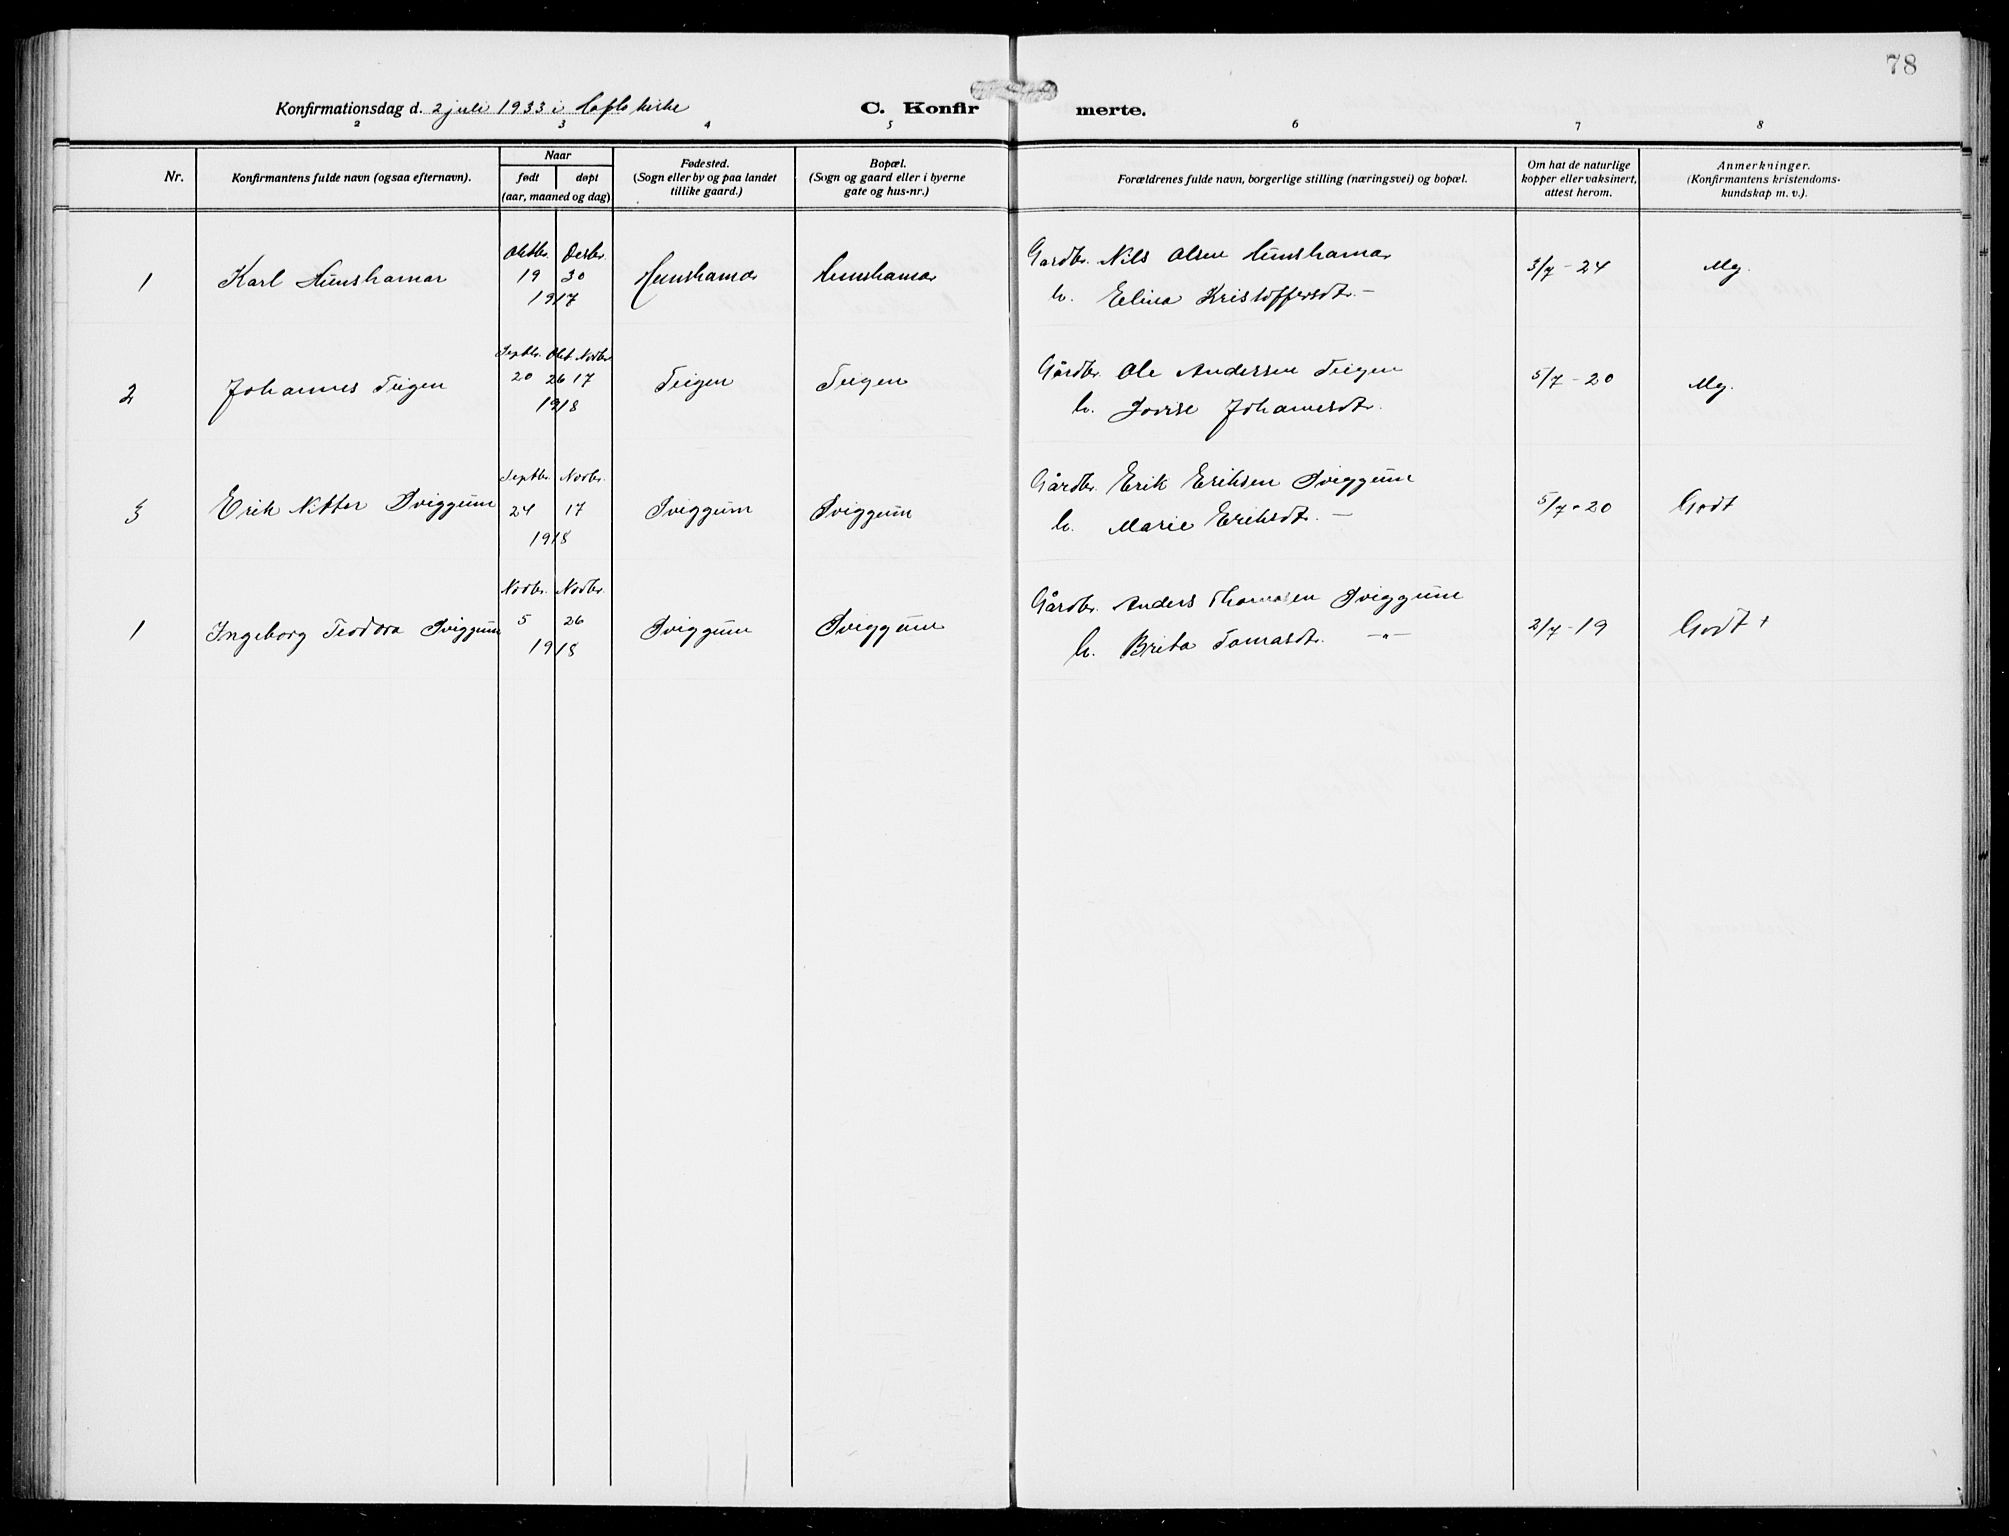 78
Konfirmationsdag d. 2 juli 1933 i Hafslo kirke
C. Konfirmerte.
2 3 4 5 6 7 8
Nr.
Konfirmantens fulde navn (ogsaa efternavn).
Naar
født døpt
(aar, maaned og dag)
Fødested.
(Sogn eller by og paa landet
tillike gaard.)
Bopæl.
(Sogn og gaard eller i byerne
gate og hus-nr.)
Forældrenes fulde navn, borgerlige stilling (næringsvei) og bopæl.
Om hat de naturlige
kopper eller vaksinert,
attest herom.
Anmerkninger.
(Konfirmantens kristendoms-
kundskap m. v.).
Oktbr. Desbr.
1 Karl Hunshamar 19 30 Hunshamar Hunshamar Gardbr. Nils Olsen Hunshamar 3/7-24 Mg.
1917 h. Elina Kristoffersdtr. –
Septbr. Okt. Novbr.
2 Johannes Teigen 20 26 17 Teigen Teigen Gårdbr. Ole Andersen Teigen 5/7-20 Mg.
1918 h. Lovise Johannesdtr.
Septbr. Novbr.
3 Erik Nitter Sviggum 24 17 Sviggum Sviggum Gårdbr. Erik Eriksen Sviggum 5/7-20 Godt
1918 h. Marie Eriksdtr. –
Novbr. Novbr.
1 Ingeborg Teodora Sviggum 5 26 Sviggum Sviggum Gårdbr. Anders Thomasen Sviggum 2/7-19 Godt +
1918 h. Brita Tomasdtr. –"–